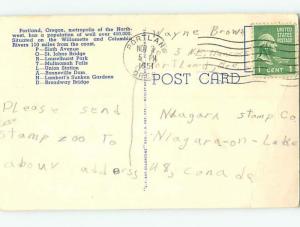 Portland, Oregon, metropolis of the North-
west, has a population of well over 400,000.
Situated on the Willamette and Columbia
Rivers 110 miles from the coast.
P—Sixth Avenue
O—St. Johns Bridge
R—Laurelhurst Park
T—Multnomah Falls
L—Union Station
A—Bonneville Dam
N—Lambert's Sunken Gardens
D—Broadway Bridge
PORTLAND
NOV 2
PM
1951
ORE.
Wayne Brown
3
Portland Ore
1¢ 1¢
1 CENT
POST CARD
Please send
stamp zoo to
abour address
Niagara stamp Co
Niagara-on-Lake
48, Canada